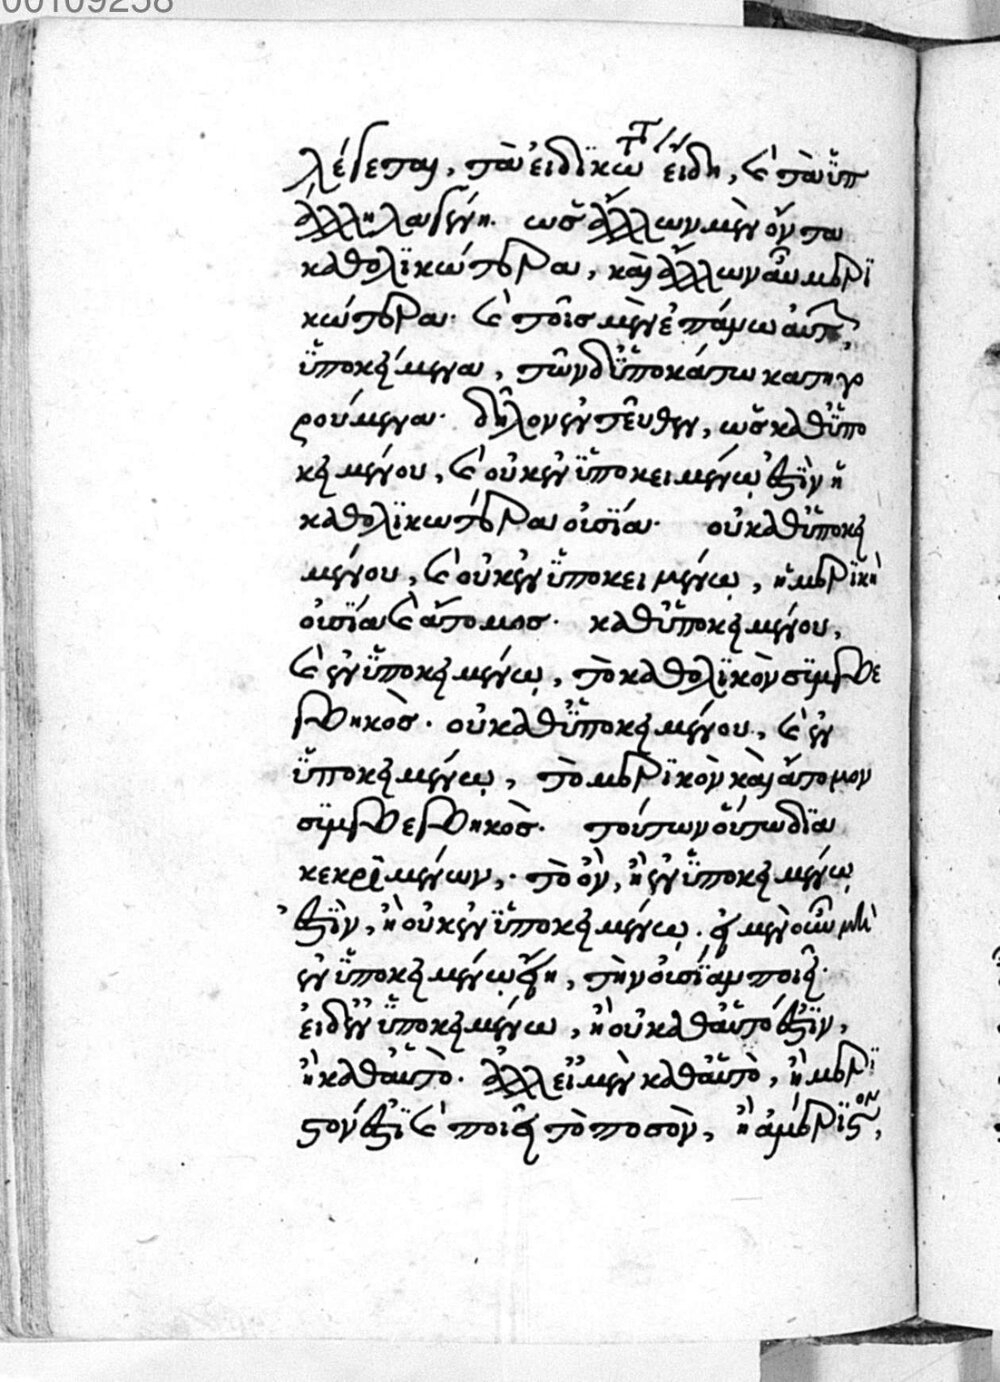 00109258
λέγεται, τὰ εἰδικώτατα εἴδη, καὶ τὰ ὑπ
ἄλληλα γένη. ὡς ἄλλων μὲν ὄντα
καθολϊκώτερα, καὶ ἄλλων αὖ μερϊ
κώτερα. καὶ τοῖς μὲν ἐπάνω αὐτῶν,
ὑποκείμενα, τῶν δ ὑποκάτω κατηγο
ρούμενα. δῆλον ἐντεῦθεν, ὡς καθ ὑπο
κειμένου, καὶ οὐκ ἐν ὑποκειμένῳ ἐστὶν ἡ
καθολϊκωτέρα οὐσία. οὐ καθ ὑποκει
μένου, καὶ οὐκ ἐν ὑποκειμένῳ, ἡ μερϊκὴ
οὐσία καὶ ἄτομος. καθ ὑποκειμένου,
καὶ ἐν ὑποκειμένῳ, τὸ καθολϊκὸν συμβε
βηκὸς. οὐ καθ ὑποκειμένου, καὶ ἐν
ὑποκειμένῳ, τὸ μερϊκὸν καὶ ἄτομον
συμβεβηκὸς. τούτων οὕτω δϊα
κεκριμένων, τὸ ὂν, ἢ ἐν ὑποκειμένῳ
ἐστὶν, ἢ οὐκ ἐν ὑποκειμένῳ. εἰ μὲν οὖν μὴ
ἐν ὑποκειμένῳ εἴη, τὴν οὐσίαν ποιεῖ.
εἰ δ ἐν ὑποκειμένῳ, ἢ οὐ καθ αὑτό ἐστϊν,
ἢ καθ αὑτὸ. ἀλλ εἰ μὲν καθ αὑτὸ, ἢ μερϊ
στόν ἐστϊ καὶ ποιεῖ τὸ ποσὸν, ἢ ἀμέρϊστον,